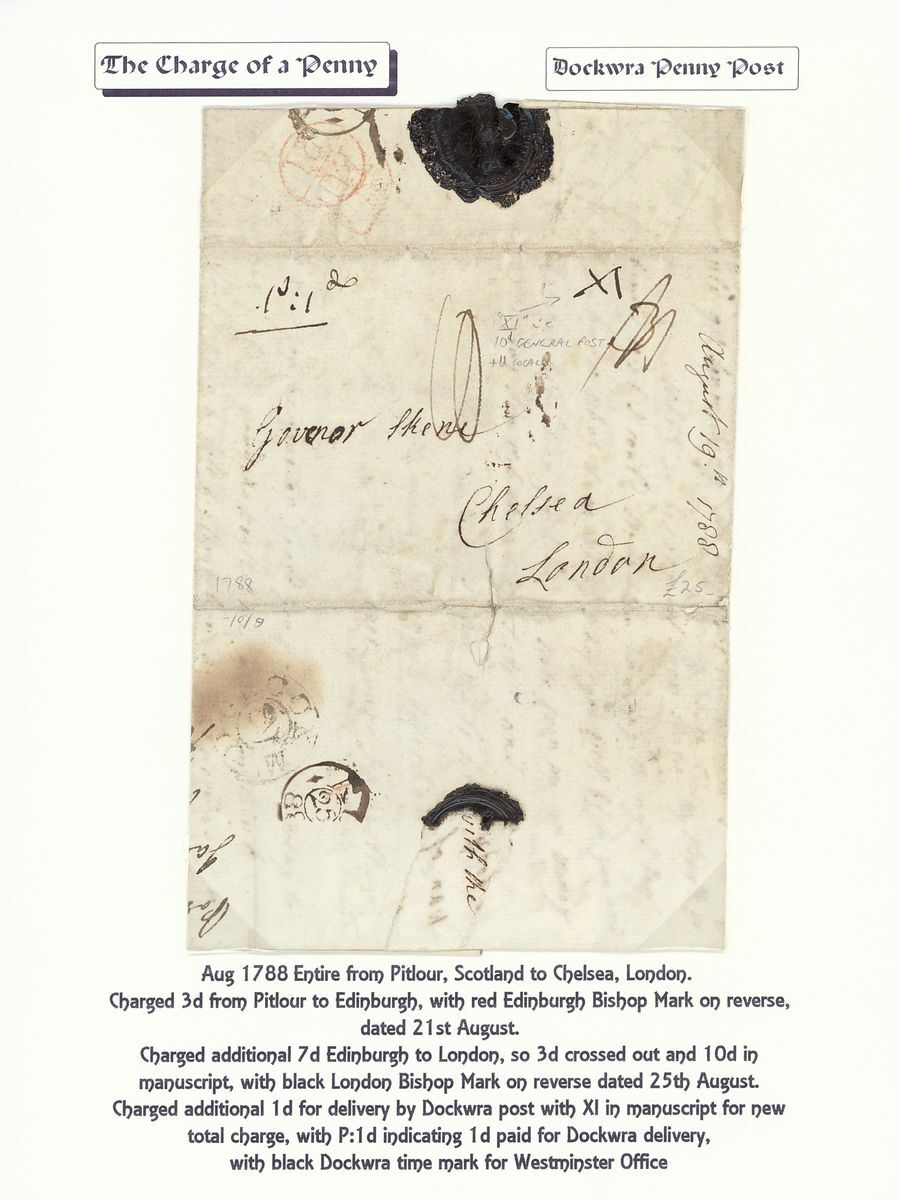 The Charge of a Penny
Dockwra Penny Post
XI
"XI" i.e
10d GENERAL POST
+1d LOCAL
Govenor Skene
Chelsea
London
August 19.th 1788
1788
£25-
-10/8
with the
Aug 1788 Entire from Pitlour, Scotland to Chelsea, London.
Charged 3d from Pitlour to Edinburgh, with red Edinburgh Bishop Mark on reverse,
dated 21st August.
Charged additional 7d Edinburgh to London, so 3d crossed out and 10d in
manuscript, with black London Bishop Mark on reverse dated 25th August.
Charged additional 1d for delivery by Dockwra post with XI in manuscript for new
total charge, with P:1d indicating 1d paid for Dockwra delivery,
with black Dockwra time mark for Westminster Office